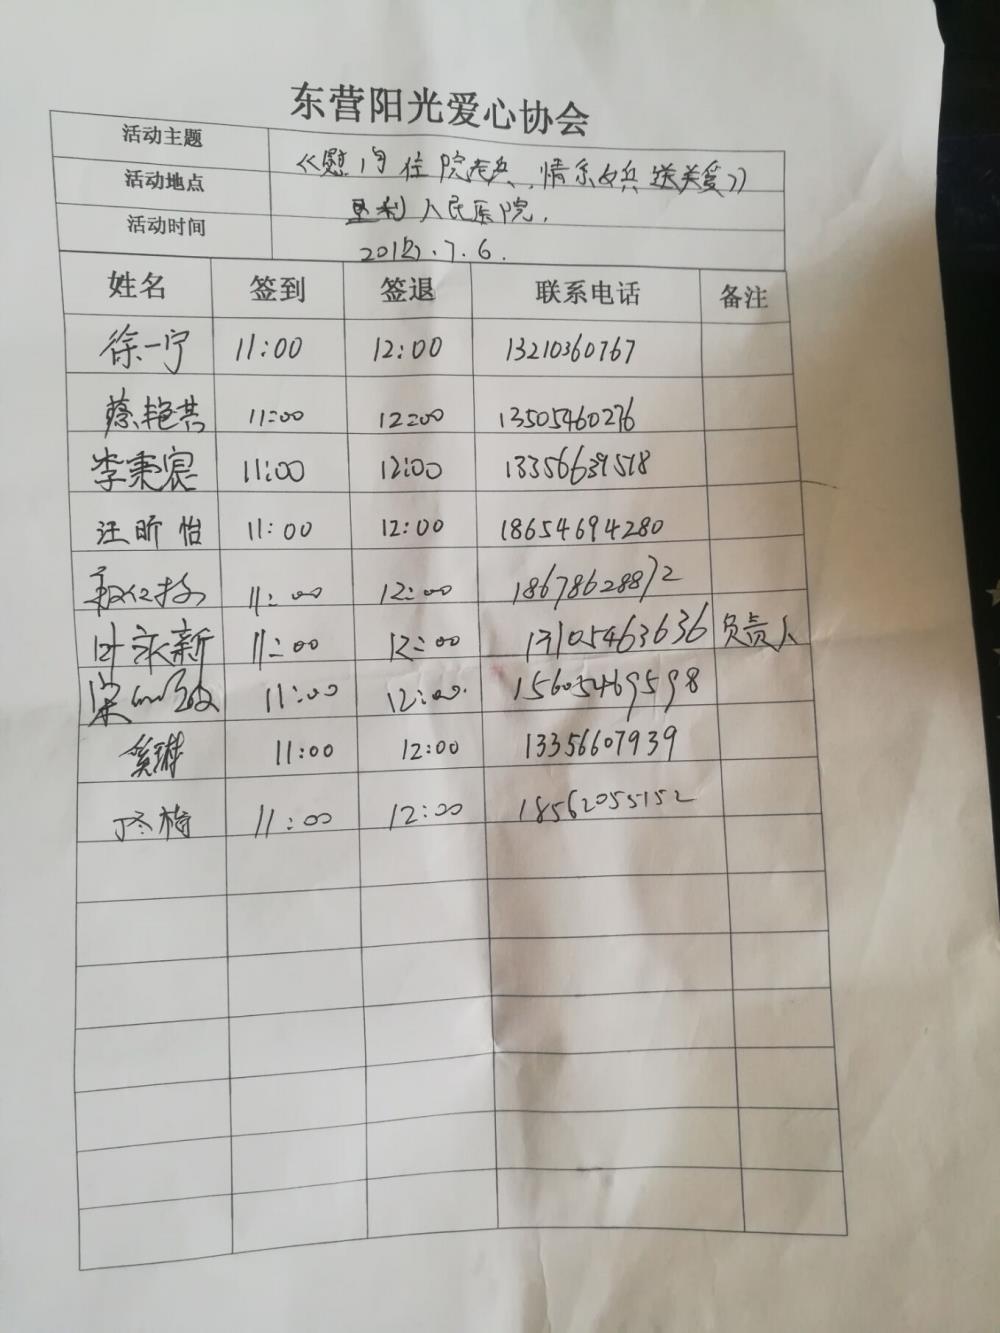 东营阳光爱心协会
活动主题 《慰问住院老兵,情系女兵送关爱》
活动地点 垦利人民医院.
活动时间 7.6.
姓名 签到 签退 联系电话 备注
徐一宁 11:00 12:00 13210360767
蔡艳芸 11:00 12:00 13505460276
李秉宸 11:00 12:00 13356639518
汪昕怡 11:00 12:00 18654694280
11:00 12:00 18678628872
叶永新 11:00 12:00 负责人
11:00 12:00 15605469598
奚琳 11:00 12:00 13356607939
丁冬梅 11:00 12:00 18562055152